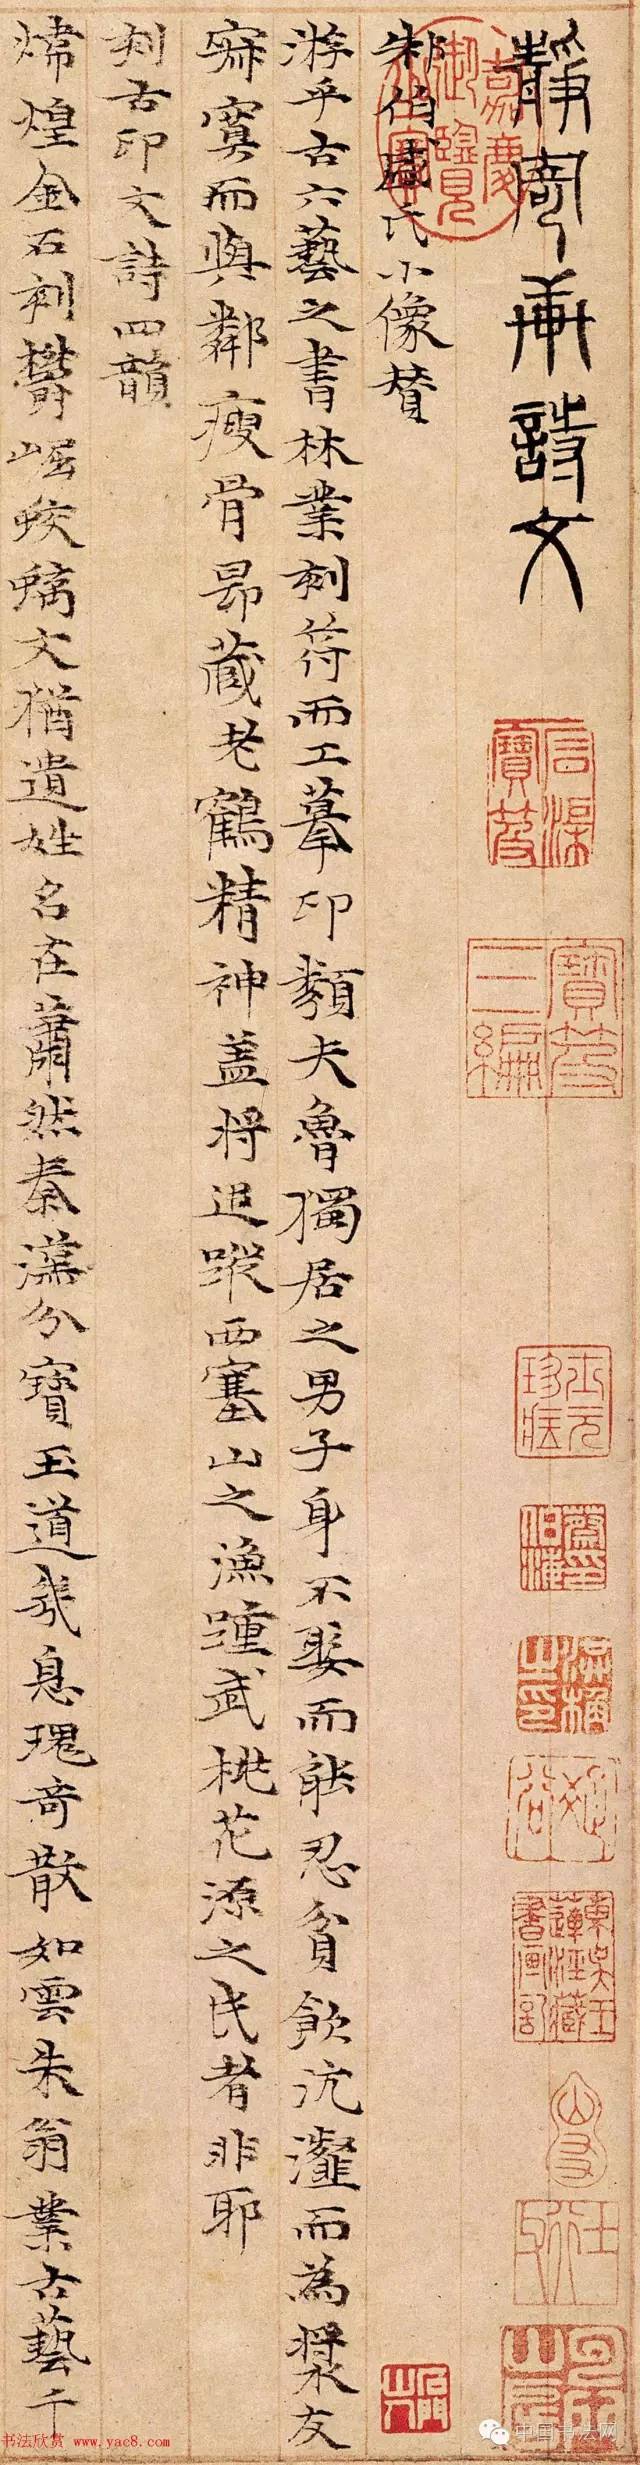 静寄庵詩文
朱伯盛氏小像贊
游乎古六藝之書林業刻符而工摹印類夫魯獨居之男子身不娶而能忍貧飲沆瀣而為漿友
寂寞而與鄰瘦骨昂藏老鶴精神蓋將追蹤西塞山之漁踵武桃花源之民者非耶
刻古印文詩四韻
煒煌金石刻鬱崛蛟螭文猶遺姓名在蕭然秦漢分寶玉道幾息瑰奇散如雲朱翁業古藝千
嘉慶御覽之寶
寶笈三編
石門山人
书法欣赏 www.yac8.com
中国书法网